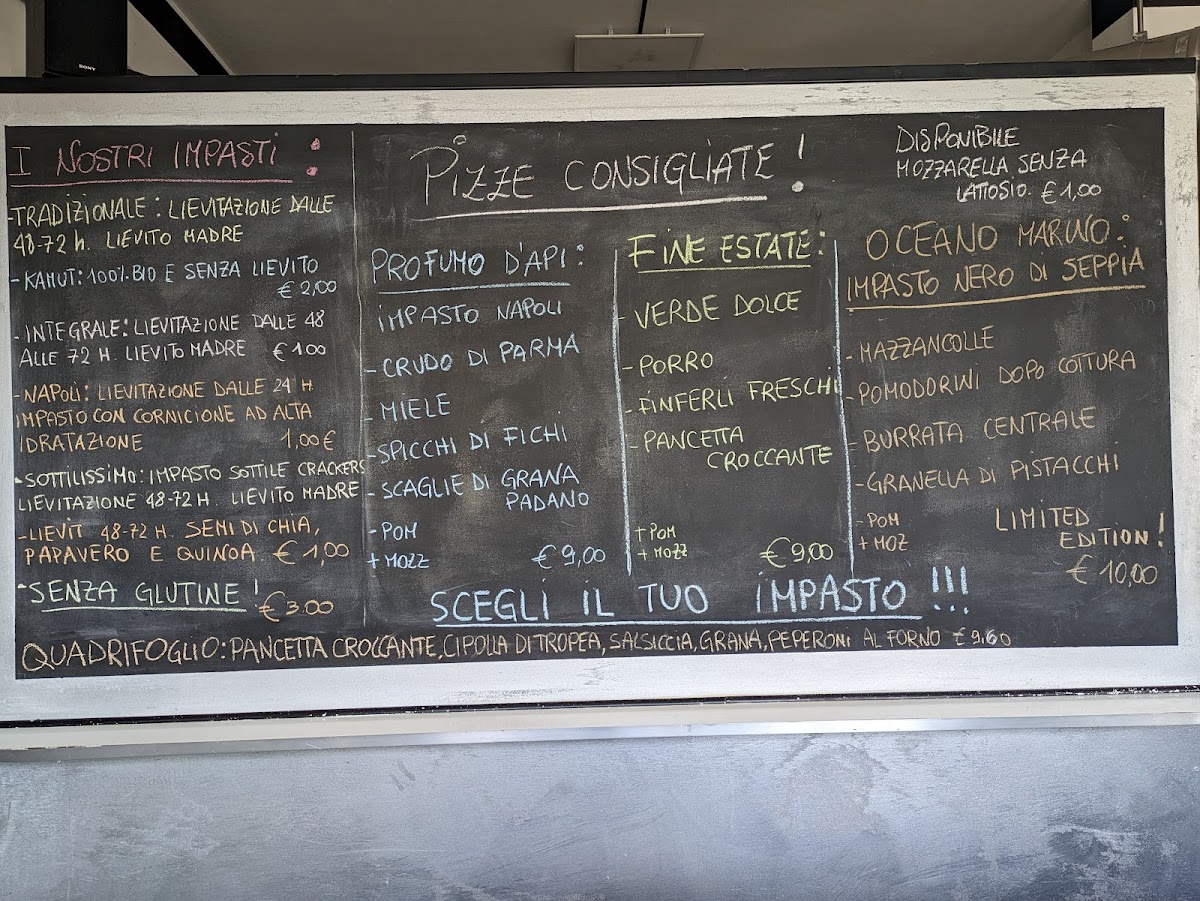 SONY
I NOSTRI IMPASTI :
-TRADIZIONALE: LIEVITAZIONE DALLE
48-72 h. LIEVITO MADRE
- KAMUT: 100% BIO E SENZA LIEVITO
€ 2,00
- INTEGRALE: LIEVITAZIONE DALLE 48
ALLE 72 H. LIEVITO MADRE € 1.00
-NAPOLI: LIEVITAZIONE DALLE 24 H
IMPASTO CON CORNICIONE AD ALTA
IDRATAZIONE 1,00 €
-SOTTILISSIMO: IMPASTO SOTTILE CRACKERS
LIEVITAZIONE 48-72 H. LIEVITO MADRE
-LIEVIT 48-72 H. SEMI DI CHIA,
PAPAVERO E QUINOA. € 1,00
-SENZA GLUTINE! € 3.00
PIZZE CONSIGLIATE!
DISPONIBILE
MOZZARELLA SENZA
LATTOSIO. € 1,00
PROFUMO D'API:
IMPASTO NAPOLI
- CRUDO DI PARMA
- MIELE
- SPICCHI DI FICHI
- SCAGLIE DI GRANA
PADANO
- POM
+ MOZZ € 9,00
FINE ESTATE:
- VERDE DOLCE
- PORRO
- FINFERLI FRESCHI
- PANCETTA
CROCCANTE
+ POM
+ MOZZ € 9,00
OCEANO MARINO:
IMPASTO NERO DI SEPPIA
- MAZZANCOLLE
- POMODORINI DOPO COTTURA
- BURRATA CENTRALE
- GRANELLA DI PISTACCHI
- POM
+ MOZ
LIMITED
EDITION!
€ 10,00
SCEGLI IL TUO IMPASTO !!!
QUADRIFOGLIO: PANCETTA CROCCANTE, CIPOLLA DI TROPEA, SALSICCIA, GRANA, PEPERONI AL FORNO € 9.60